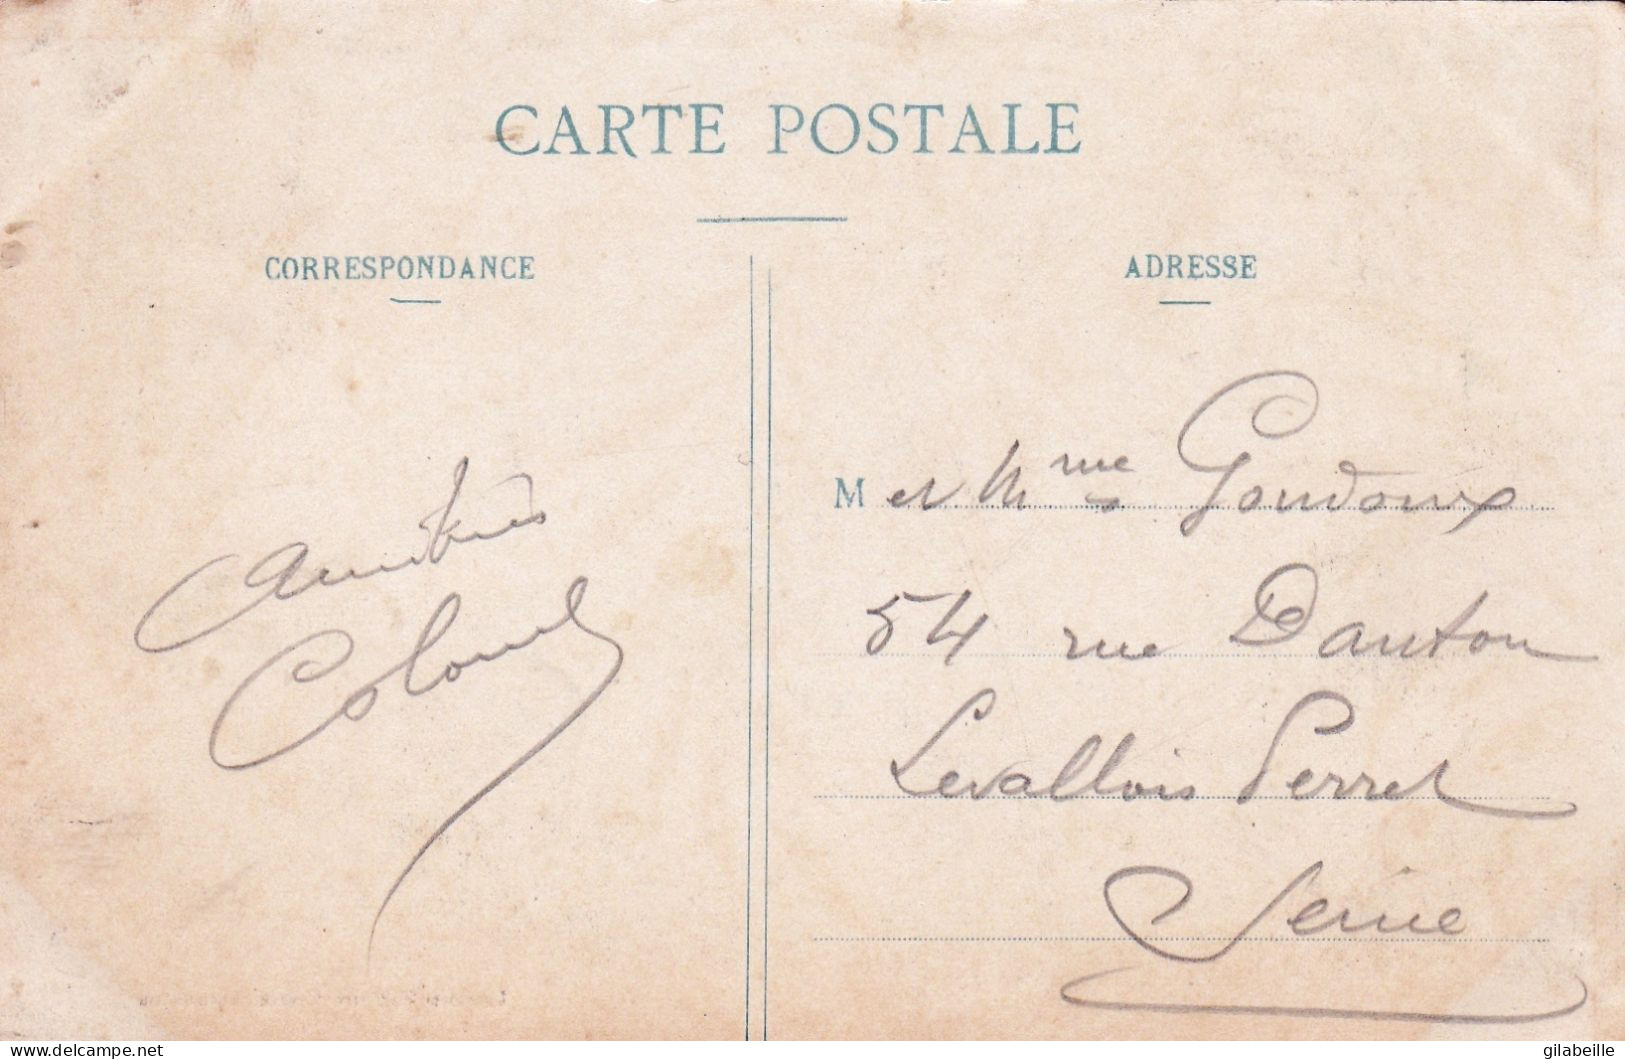 CARTE POSTALE
CORRESPONDANCE
ADRESSE
Amitiés
M et Mme Goudoux
54 rue Danton
Levallois Perret
Seine
www.delcampe.net
gilabeille